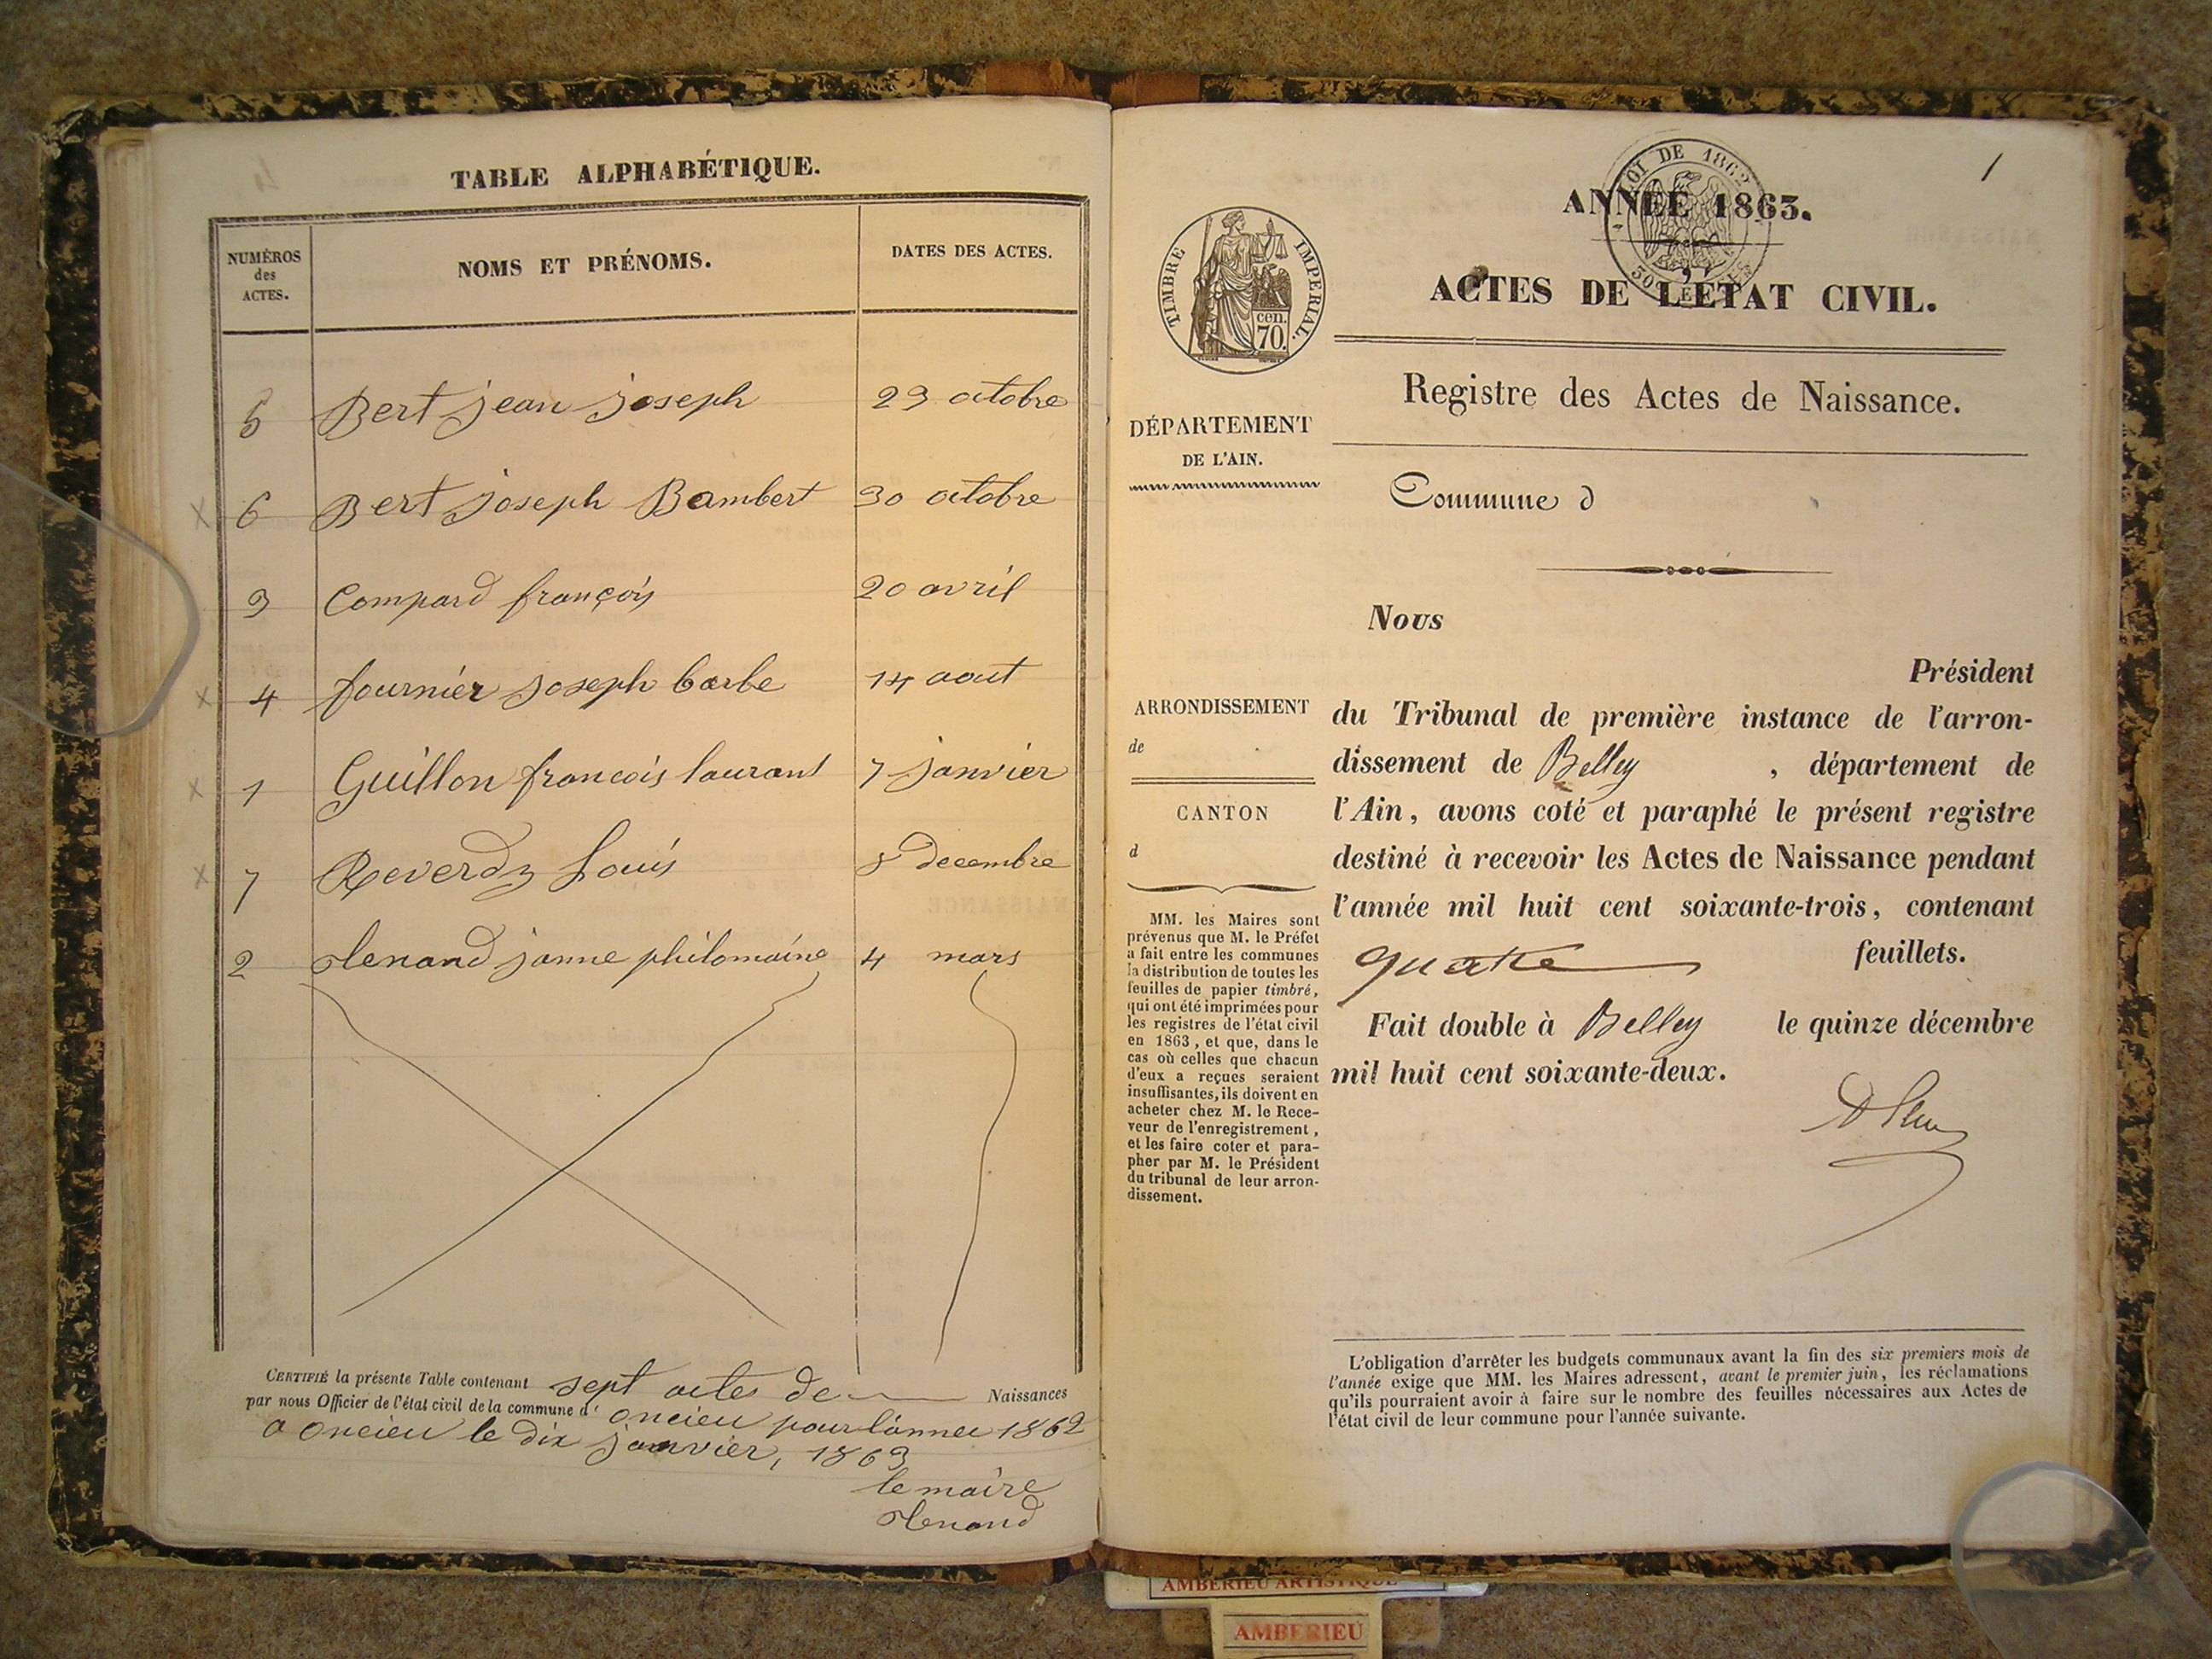 TABLE ALPHABÉTIQUE.
NUMÉROS
des
ACTES.
NOMS ET PRÉNOMS.
DATES DES ACTES.
5 Bert jean joseph 29 octobre
6 Bert joseph Bambert 30 octobre
3 Compard françois 20 avril
4 fournier joseph barbe 14 aout
1 Guillon francois laurant 7 janvier
7 Reverdy Louis 8 decembre
2 janne philomaine 4 mars
CERTIFIÉ la présente Table contenant sept actes de Naissances
par nous Officier de l'état civil de la commune d' oncieu pour lánneé 1862
a oncieu le dix janvier, 1863
le maire
1
LOI DE 1862
ANNÉE 1863.
ACTES DE L'ÉTAT CIVIL.
TIMBRE IMPERIAL.
cen.
70.
Registre des Actes de Naissance.
DÉPARTEMENT
DE L'AIN.
Commune d
Nous
Président
ARRONDISSEMENT
de
CANTON
d
du Tribunal de première instance de l'arron-
dissement de Belley , département de
l'Ain, avons coté et paraphé le présent registre
destiné à recevoir les Actes de Naissance pendant
l'année mil huit cent soixante-trois, contenant
quatre feuillets.
Fait double à Belley le quinze décembre
mil huit cent soixante-deux.
MM. les Maires sont
prévenus que M. le Préfet
a fait entre les communes
la distribution de toutes les
feuilles de papier timbré,
qui ont été imprimées pour
les registres de l'état civil
en 1863, et que, dans le
cas où celles que chacun
d'eux a reçues seraient
insuffisantes, ils doivent en
acheter chez M. le Rece-
veur de l'enregistrement,
et les faire coter et para-
pher par M. le Président
du tribunal de leur arron-
dissement.
L'obligation d'arrêter les budgets communaux avant la fin des six premiers mois de
l'année exige que MM. les Maires adressent, avant le premier juin, les réclamations
qu'ils pourraient avoir à faire sur le nombre des feuilles nécessaires aux Actes de
l'état civil de leur commune pour l'année suivante.
AMBERIEU ARTISTIQUE
AMBERIEU